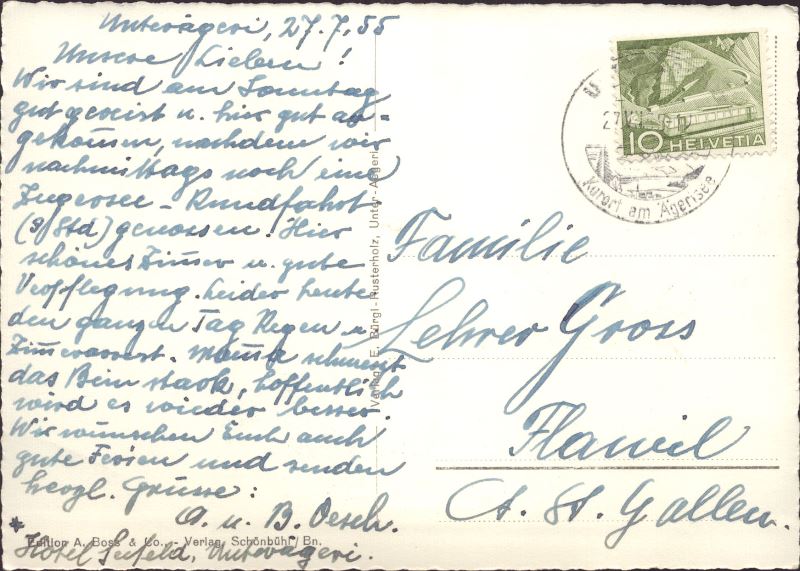 Unterägeri, 27.7.55
Unsere Lieben!
Wir sind am Sonntag
gut gereist u. hier gut an=
gekommen, nachdem wir
nachmittags noch eine
Zugersee - Rundfahrt
(3 Std) genossen. Hier
schönes Zimmer u. gute
Verpflegung. Leider heute
den ganzen Tag Regen u.
Zimmerarrest. schmerzt
das Bein stark, hoffentlich
wird es wieder besser.
Wir wünschen Euch auch
gute Ferien und senden
herzl. Grüsse:
A. u. B. Oesch.
* Hotel Seefeld, Unterägeri.
Edition A. Boss & Co. - Verlag, Schönbühl / Bn.
Verlag E. Bürgi-Rusterholz, Unter-Aegeri
10 HELVETIA
Kurort am Ägerisee
Familie
Lehrer Gross
Flawil
Ct. St. Gallen.